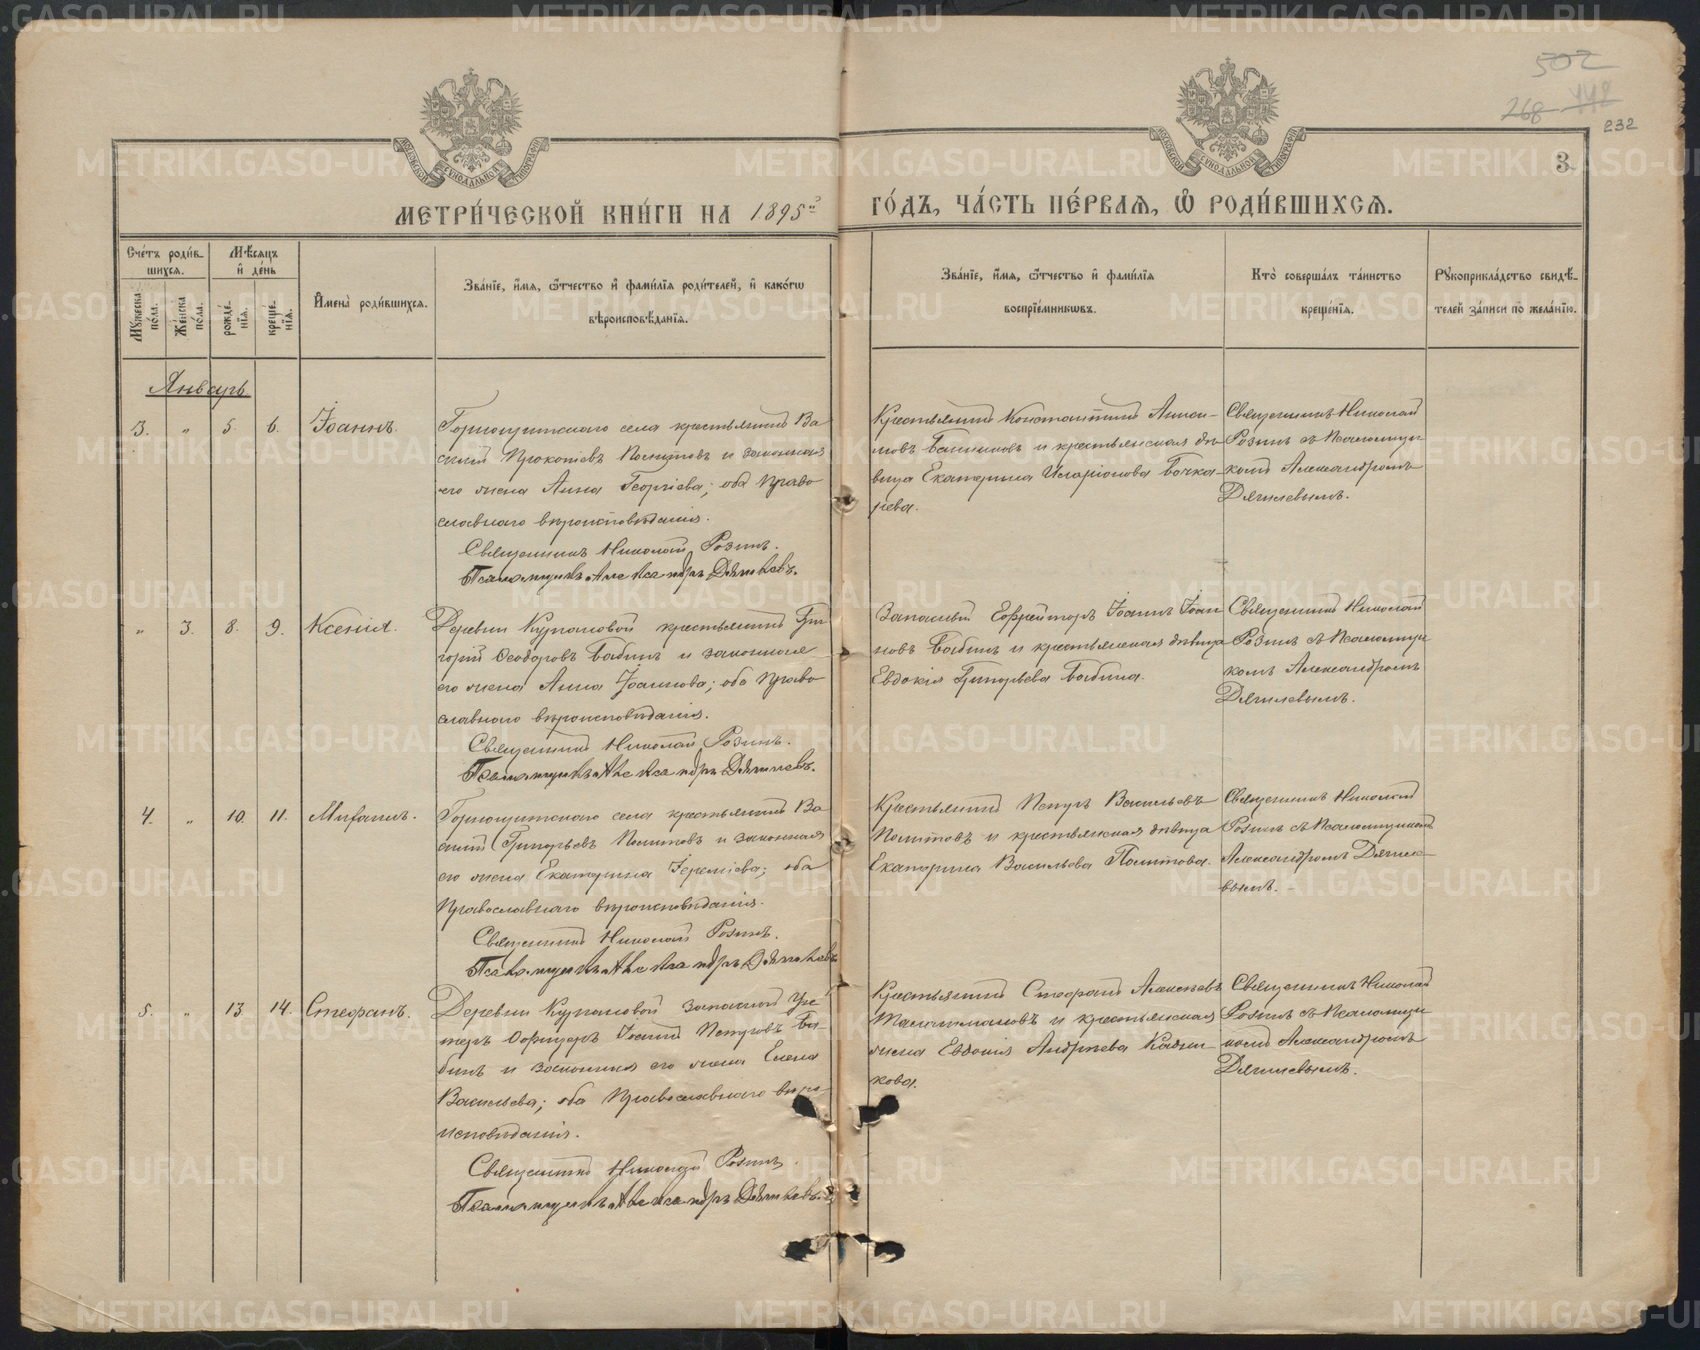 502
268 448
232
МОСКОВСКОЙ СУНОДАЛЬНОЙ ТИПОГРАФІИ
МОСКОВСКОЙ СУНОДАЛЬНОЙ ТИПОГРАФІИ
3
МЕТРИ́ЧЕСКОЙ КНИ́ГИ НА 1895й
ГО́ДЪ, ЧА́СТЬ ПЕ́РВАЯ, Ѡ҆ РОДИ́ВШИХСЯ.
Сче́тъ роди́в-
шихся.
Мꙋ́жеска по́ла.
Же́нска по́ла.
Мѣ́сяцъ
и҆ де́нь
рожде́-
нїя.
креще́-
нїя.
И҆мена̀ роди́вшихся.
Зва́нїе, и҆́мя, ѻ҆́тчество и҆ фами́лїя роди́телей, и҆ како́гѡ
вѣроисповѣ́данїя.
Зва́нїе, и҆́мя, ѻ҆́тчество и҆ фами́лїя
воспрїе́мникѡвъ.
Кто̀ соверша́лъ та́инство
креще́нїя.
Рꙋкоприкла́дство свидѣ́-
телей за́писи по жела́нїю.
Январь
3. " 5. 6. Іоаннъ.
Горнощитскаго села крестьянинъ Ва
силій Прокопіевъ Поспѣловъ и законная
его жена Анна Георгіева; оба Право
славнаго вѣроисповѣданія.
Священникъ Николай Розинъ.
Псаломщикъ Александръ Дягилевъ.
Крестьянинъ Константинъ
и крестьянская дѣ
вица Екатерина Иларіонова Бочка-
рева.
Священникъ Николай
Розинъ съ Псаломщи
комъ Александромъ
Дягилевымъ.
" 3. 8. 9. Ксенія.
Деревни Кургановой крестьянинъ Гри
горій Ѳеодоровъ Бабинъ и законная
его жена Анна Іоаннова; оба Право
славнаго вѣроисповѣданія.
Священникъ Николай Розинъ.
Псаломщикъ Александръ Дягилевъ.
Запасный Ефрейторъ Іоаннъ Іоан
новъ Бабинъ и крестьянская дѣвица
Евдокія Григорьева Бабина.
Священникъ Николай
Розинъ съ Псаломщи
комъ Александромъ
Дягилевымъ.
4. " 10. 11. Михаилъ.
Горнощитскаго села крестьянинъ Ва
силій Григорьевъ и законная
его жена Екатерина Іереміева; оба
Православнаго вѣроисповѣданія.
Священникъ Николай Розинъ.
Псаломщикъ Александръ Дягилевъ
Крестьянинъ Петръ Васильевъ
и крестьянская дѣвица
Екатерина Васильева
Священникъ Николай
Розинъ съ Псаломщикомъ
Александромъ Дягиле-
вымъ.
5. " 13. 14. Стефанъ.
Деревни Кургановой запасный Ун
теръ Офицеръ Іоаннъ Петровъ Ба-
бинъ и законная его жена Елена
Васильева; оба Православнаго вѣро
исповѣданія.
Священникъ Николай Розинъ.
Псаломщикъ Александръ Дягилевъ.
Крестьянинъ Стефанъ Алексѣевъ
и крестьянская
жена Евдокія Андреева
кова.
Священникъ Николай
Розинъ съ Псаломщи
комъ Александромъ
Дягилевымъ.
METRIKI.GASO-URAL.RU